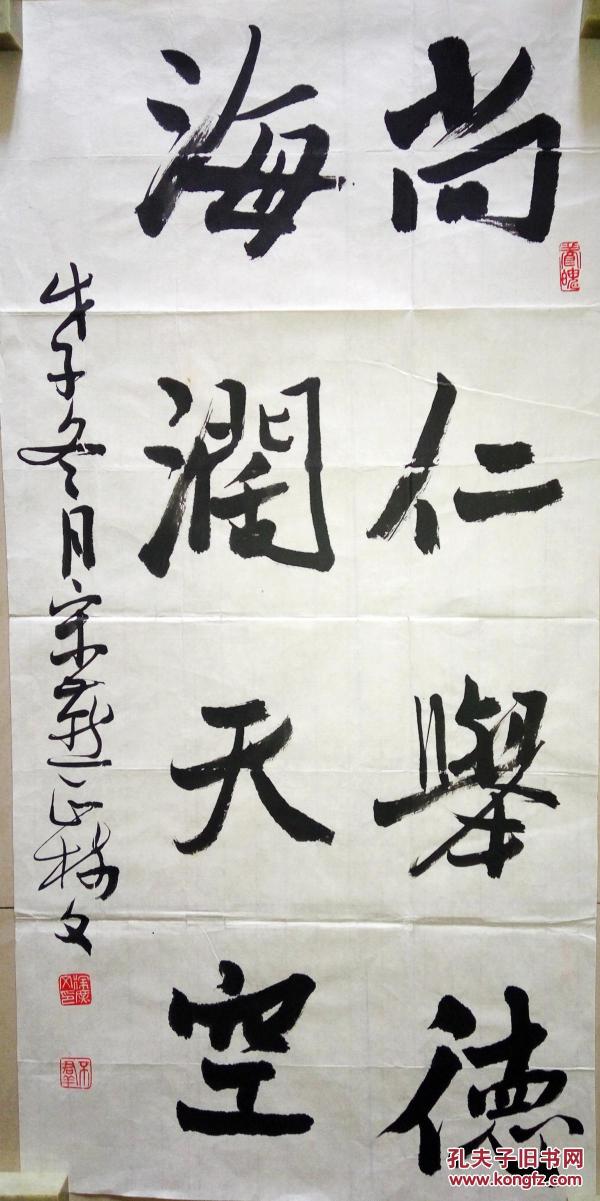 尚仁舉德
海潤天空
戊子冬月宗燕正樹文
孔夫子旧书网
www.kongfz.com